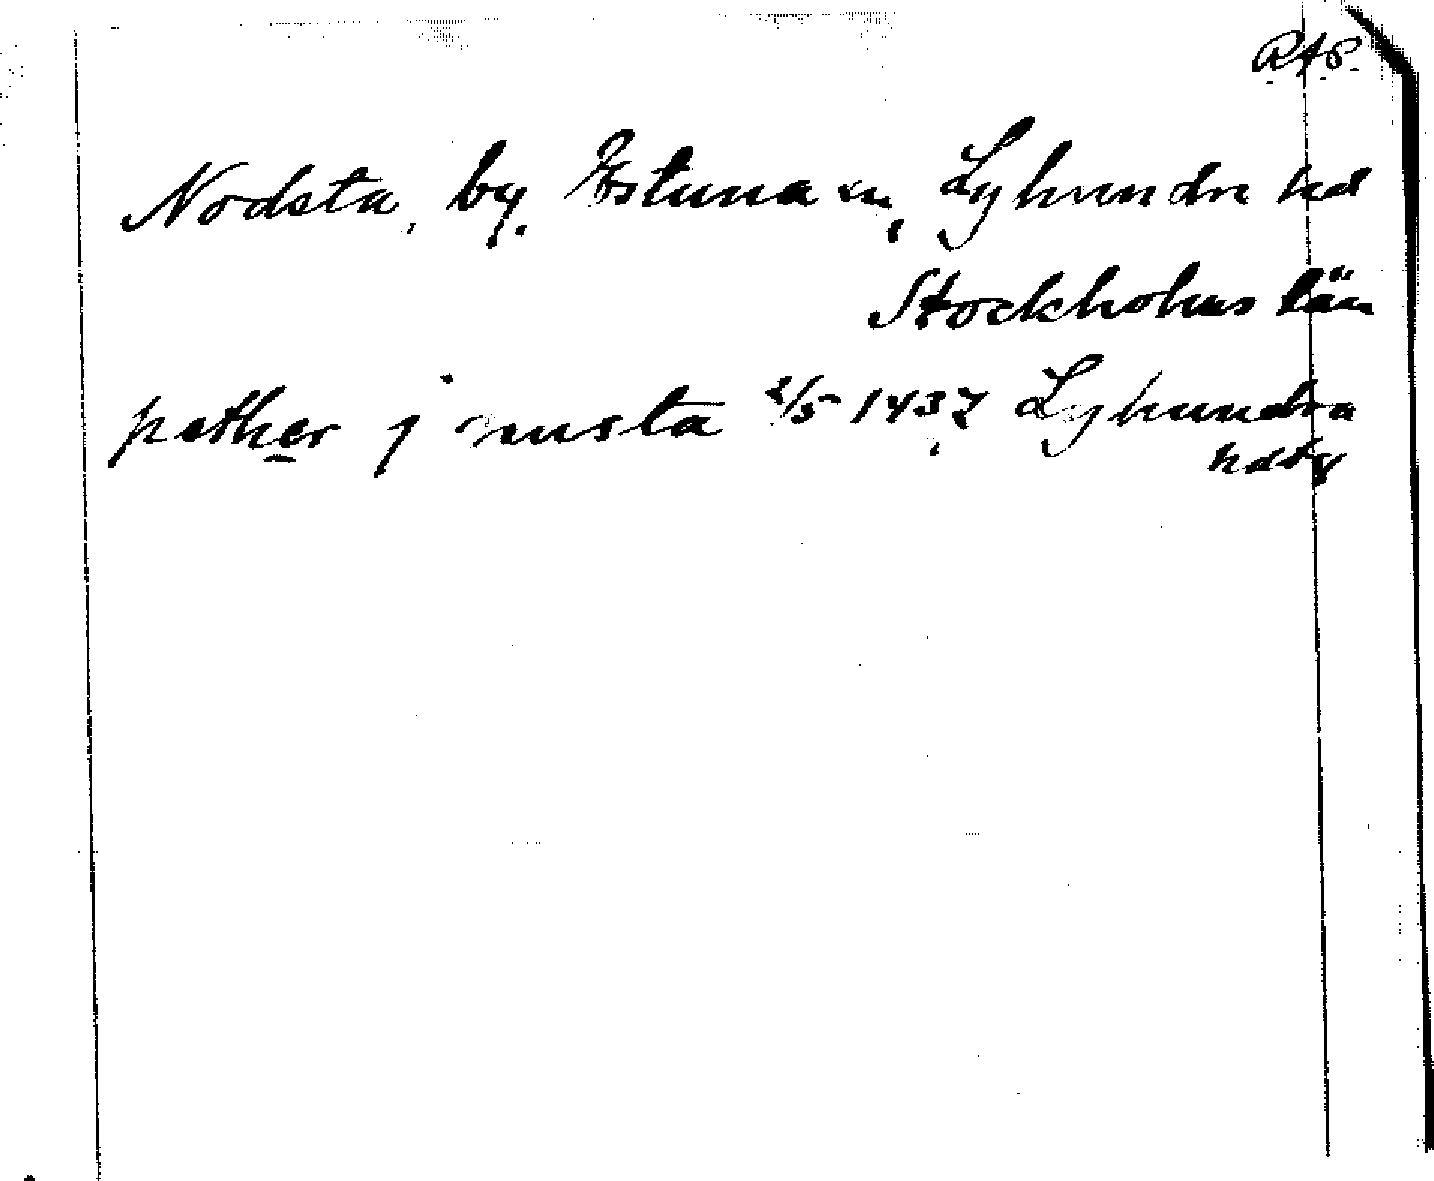 RAP.
Nodsta, by. Estuna sn, Lyhundra hd
Stockholms län
pether j nusta 2/5 1437, Lyhundra
hdtg